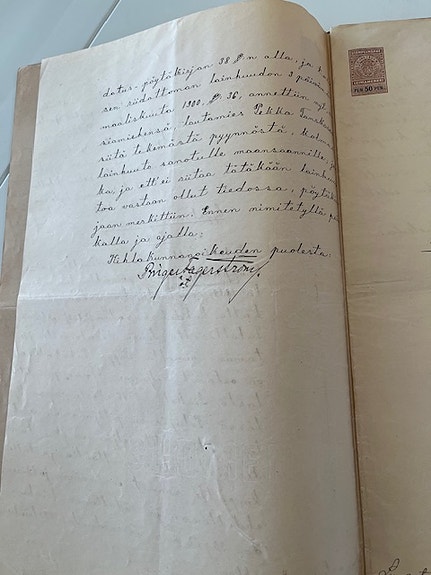 datus-pöytäkirjan 38 §:n alla, ja
sen siidottoman lainhuudon 3 päivänä
maaliskuuta 1900, § 36, annettiin nyt
siamiehensä, lautamies Pekka Tanskan
siitä tekemästä pyynnöstä, kolmas
lainhuuto sanotulle maansaannille,
ka, ja ett'ei siitaa tätäkään lainhuu
toa vastaan ollut tiedossa, pöytäkir
jaan merkittiin; Ennen nimitetyllä pai
kalla ja ajalla;
Kihlakunnanoikeuden puolesta:
Birger Fagerström.
PEN. 50 PEN.